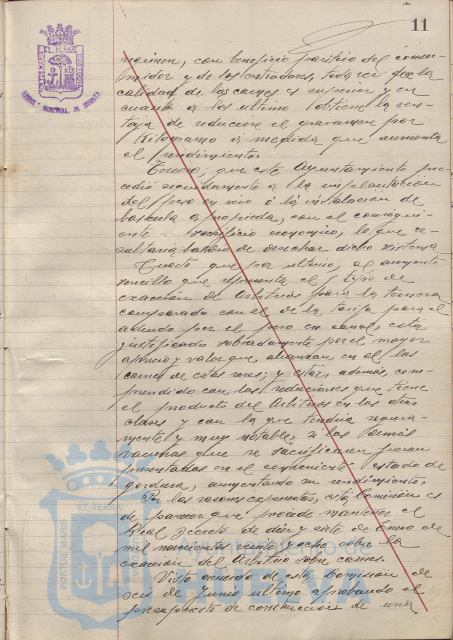 11
regimen, con beneficio positivo del consu-
midor y de los entradores, toda vez que la
calidad de las carnes es superior y en
cuanto a los ultimos obtiene la ven-
taja de reducir el gravamen por
Kilogramo a medida que aumenta
el rendimiento.
Tercero; que este Ayuntamiento pro-
cedió seguidamente a la implantación
del peso en vivo o la instalación de
bascula apropiada, con el consiguien-
te sacrificio economico, lo que re-
sultaria baldio de desechar dicho sistema
Cuarto que por ultimo, el aumento
sencillo que representa el tipo de
exacción de Arbitrios para la ternera
comparado con el de la tarifa para el
adeudo por el peso en canal, está
justificado sobradamente por el mayor
aprecio y valor que alcanzan en el las
carnes de estas reses; y está, además, com-
prendido con las reducciones que tiene
el producto del Arbitrio en las otras
clases y con la que tendria segura-
mente y muy notable si las demás
vacunas que se sacrifican fueran
presentadas en el conveniente estado de
gordura, aumentando su rendimiento.
Por las razones expuestas, esta Comisión es
de parecer que procede mantener el
Real decreto de diez y siete de Enero de
mil novecientos veinte y ocho sobre la
exacción del Arbitrio sobre carnes.
Visto acuerdo de esta Comisión de
seis de Junio ultimo aprobando el
presupuesto de construcción de una
Ayuntamiento de
HUELVA
PORTUS MARIS
ET TERRAE